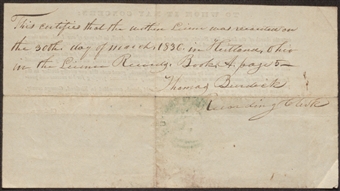 This certifies that the within License was recorded on
the 30th day of March 1836. in Kirtland, Ohio
in the License Records, Book A. page 5—
Thomas Burdick
Recording Clerk